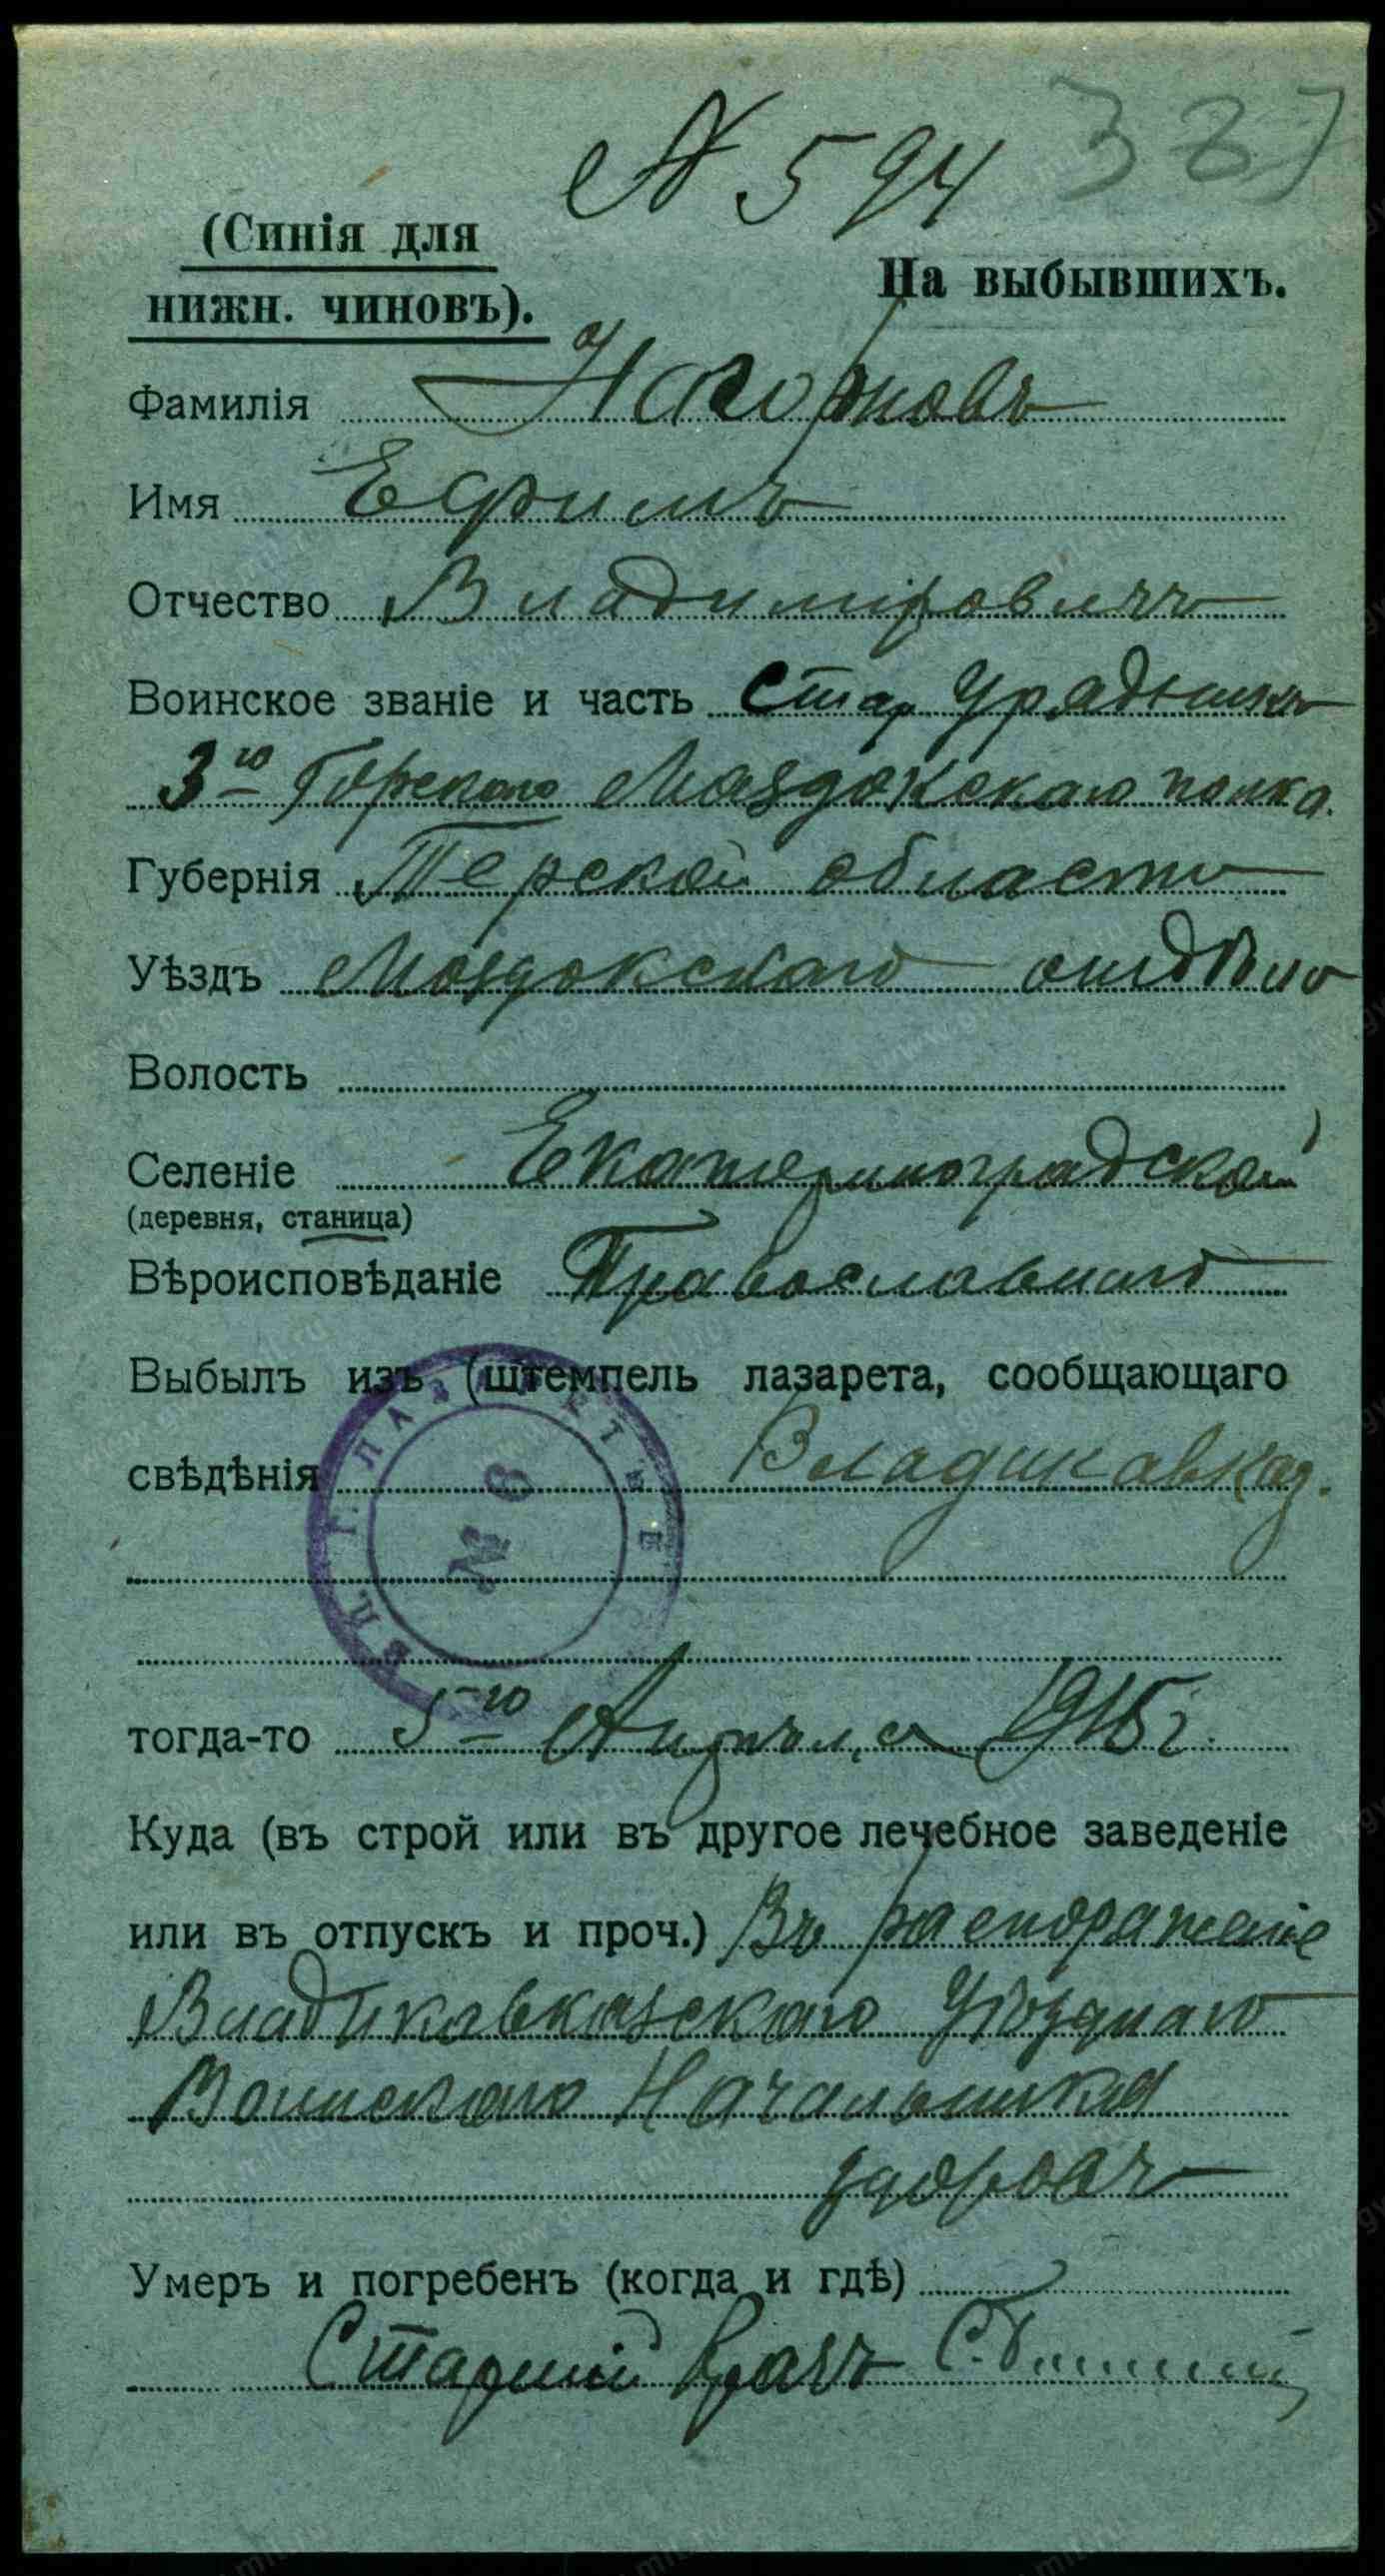 № 594 387
(Синія для
нижн. чиновъ).
На выбывшихъ.
Фамилія Нагорновъ
Имя Ефимъ
Отчество Владиміровичъ
Воинское званіе и часть Стар Урядникъ
3го Горскаго Маздокскаго полка.
Губернія Терской области
Уѣздъ Моздокскаго отдѣла
Волость
Селеніе Екатериноградской
(деревня, станица)
Вѣроисповѣданіе Православнаго
Выбылъ изъ (штемпель лазарета, сообщающаго
свѣдѣнія Владикавказ.
№ 6
тогда-то 5го Апрѣля 1915 г.
Куда (въ строй или въ другое лечебное заведеніе
или въ отпускъ и проч.) Въ распоряженіе
Владикавказскаго Уѣзднаго
Воинскаго Начальника
здоровъ
Умеръ и погребенъ (когда и гдѣ)
Старшій врачъ